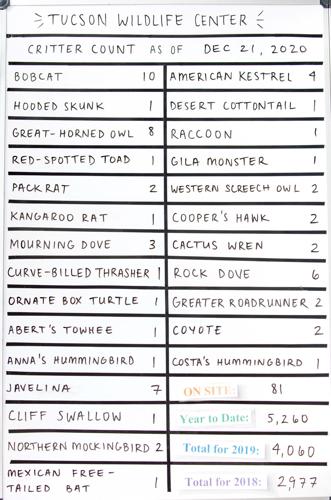 TUCSON WILDLIFE CENTER
CRITTER COUNT AS OF DEC 21, 2020
BOBCAT 10 AMERICAN KESTREL 4
HOODED SKUNK 1 DESERT COTTONTAIL 1
GREAT-HORNED OWL 8 RACCOON 1
RED-SPOTTED TOAD 1 GILA MONSTER 1
PACKRAT 2 WESTERN SCREECH OWL 2
KANGAROO RAT 1 COOPER'S HAWK 2
MOURNING DOVE 3 CACTUS WREN 2
CURVE-BILLED THRASHER 1 ROCK DOVE 6
ORNATE BOX TURTLE 1 GREATER ROADRUNNER 2
ABERT'S TOWHEE 1 COYOTE 2
ANNA'S HUMMINGBIRD 1 COSTA'S HUMMINGBIRD 1
JAVELINA 7 ON SITE: 81
CLIFF SWALLOW 1 Year to Date: 5,260
NORTHERN MOCKINGBIRD 2 Total for 2019: 4,060
MEXICAN FREE-
TAILED BAT 1 Total for 2018: 2,977